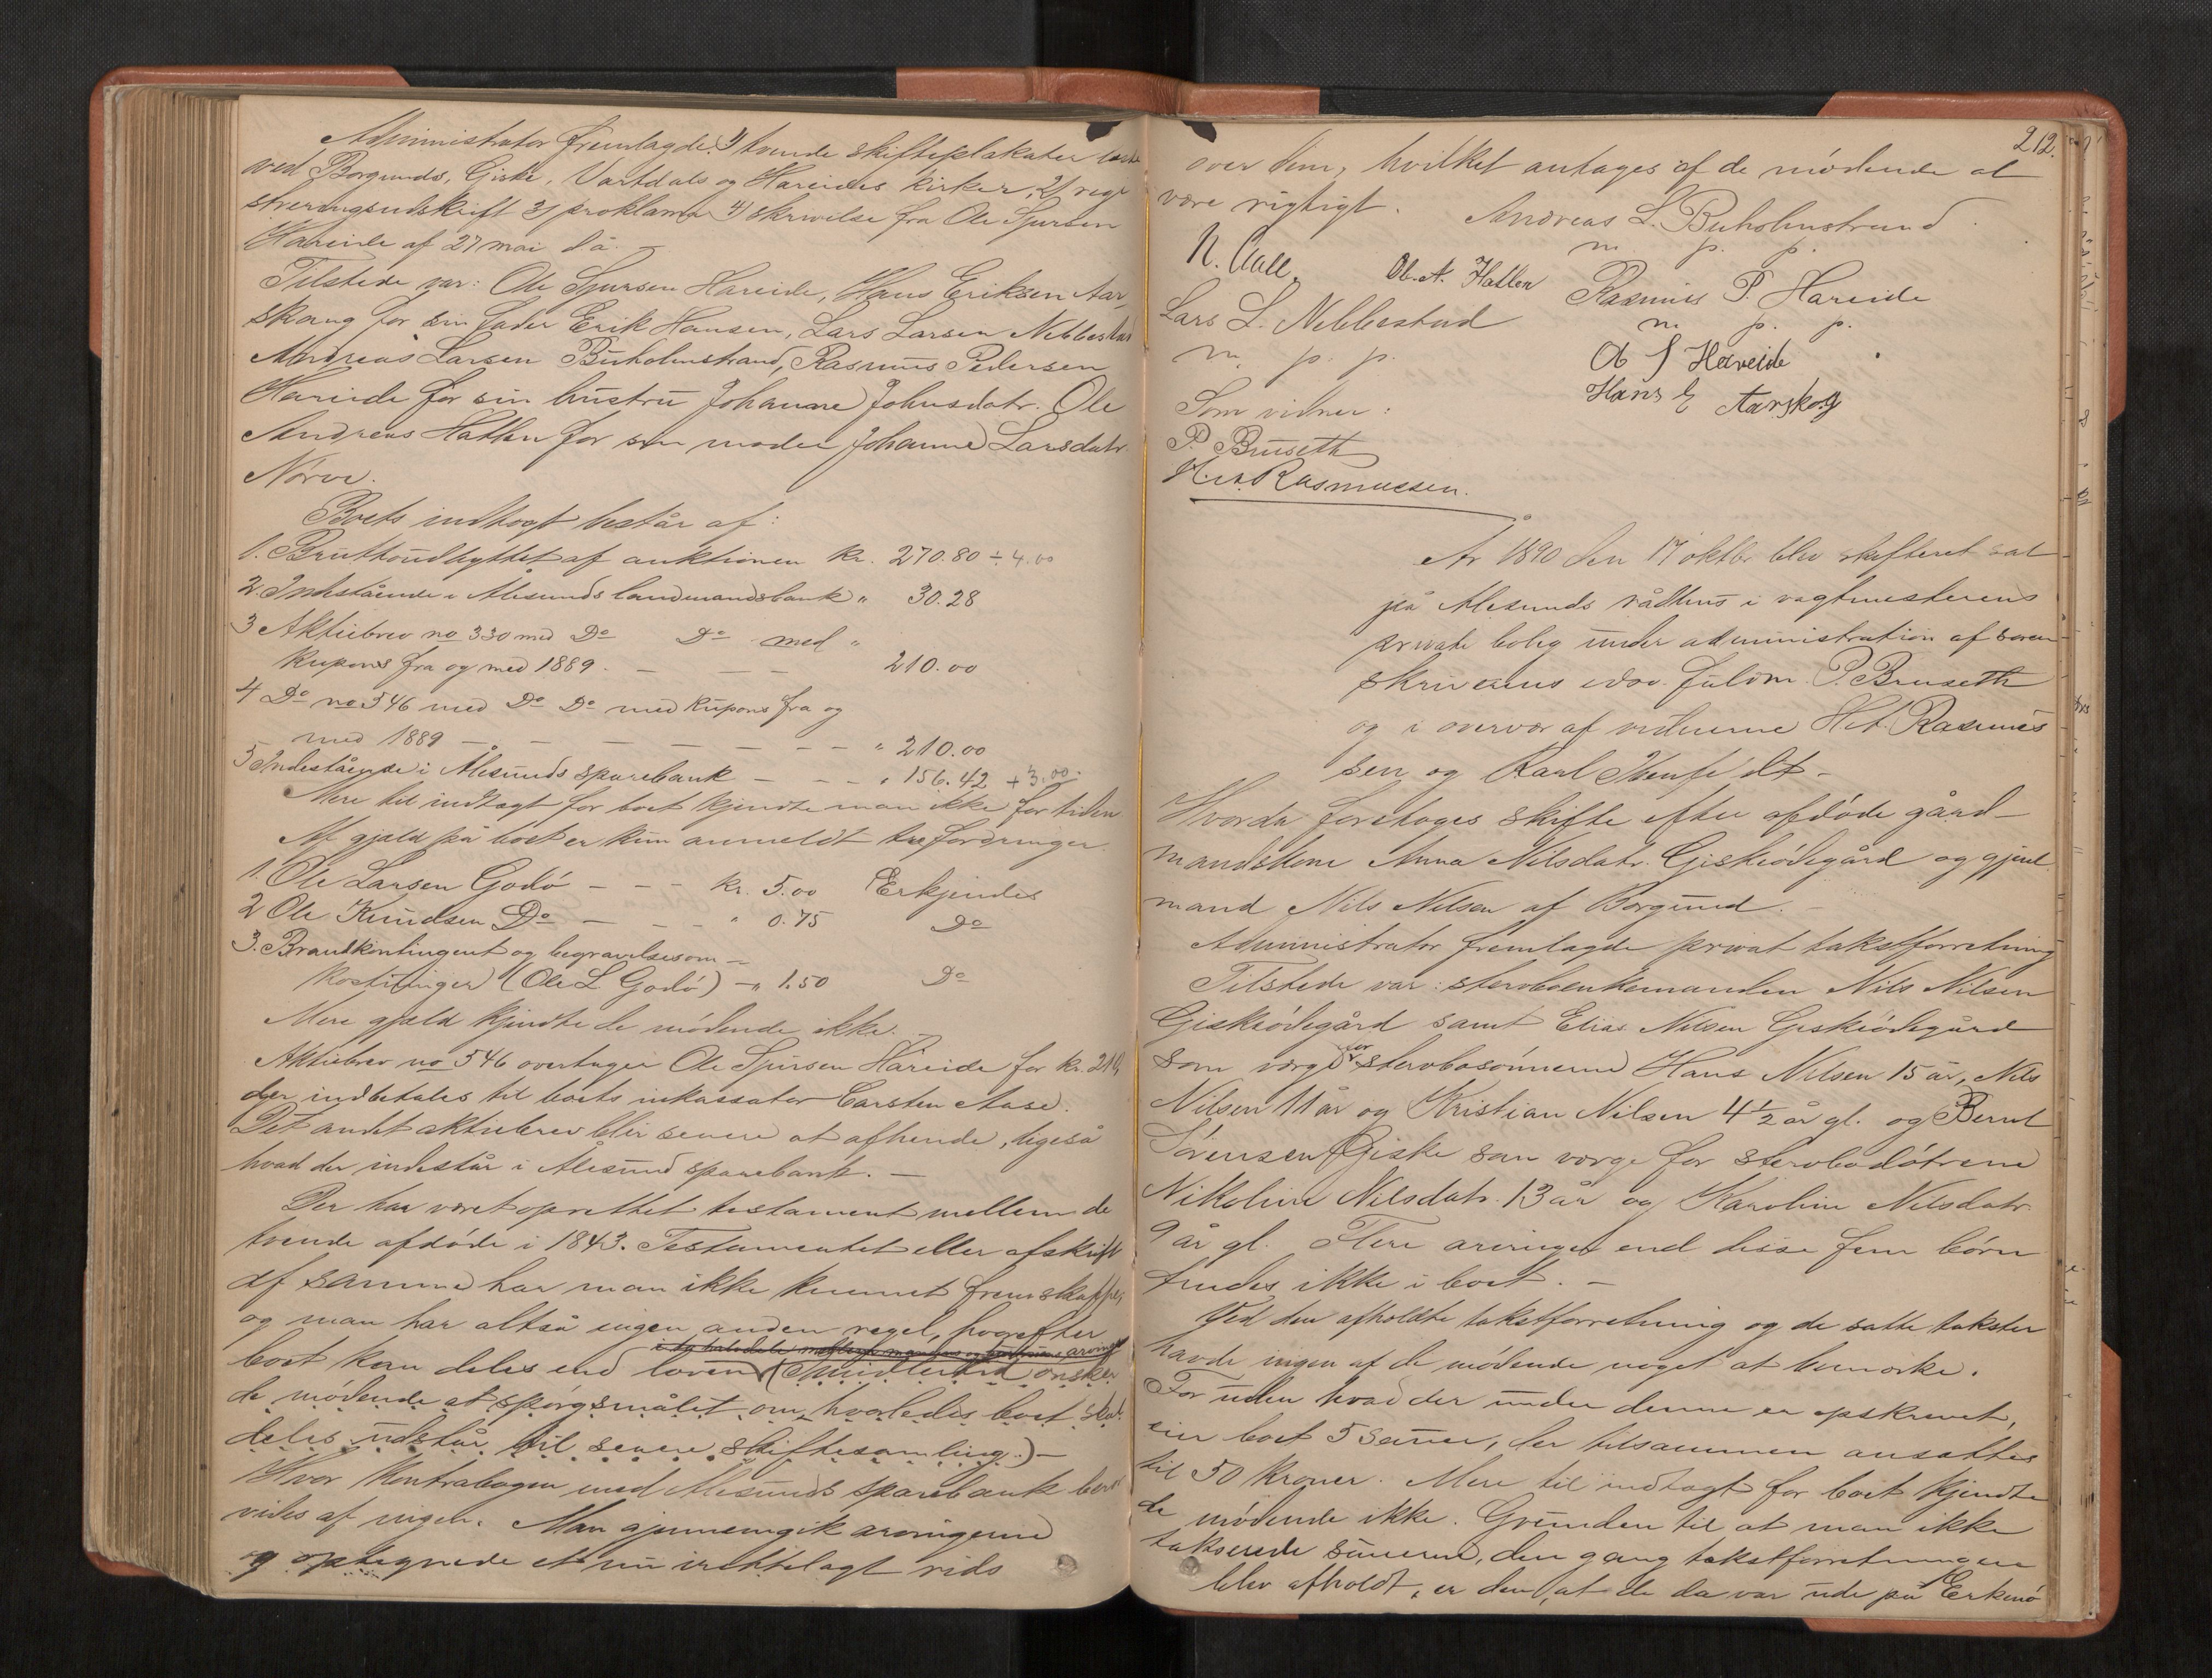 Administrator fremlagde 1) tvende skifteplakater læste
ved Borgunds, Giske, Vartdals og Hareides kirker, 2) regi
streringsudskrift 3) proklama 4) skrivelse fra Ole Sjursen
Hareide af 27 mai d å. —
Tilstede var: Ole Sjursen Hareide, Hans Eriksen Aar
skoug for sin fader Erik Hansen, Lars Larsen Nebbestad
Andreas Larsen Buholmstrand, Rasmus Pedersen
Hareide for sin hustru Johanne Johnsdatr. Ole
Andreas Hatlen for sin moder Johanne Larsdatr.
Nørve.
Boets indtægt består af:
1. Bruttoudbyttet af auktionen kr. 270.80 ÷ 4.00
2. Indestående i Ålesunds landmandsbank " 30.28
3 Aktiebrev no 330 med Do Do med "
kupons fra og med 1889. — — — 210.00
4 Do no 546 med Do Do med kupons fra og
med 1889 — — — — — — — — " 210.00
5 Indestående i Ålesunds sparebank — — — " 156.42 + 3.00.
Mere til indtægt for boet kjendte man ikke for tiden
Af gjæld på boet er kun anmeldt tre fordringer.
1. Ole Larsen Godø — — — kr. 5.00 Erkjendes
2 Ole Knudsen Do — — — " 0.75 Do
3. Brandkontingent og begravelsesom—
kostninger (Ole L Godø) — " 1.50 Do
Mere gjæld kjendte de mødende ikke. —
Aktiebrev no 546 overtager Ole Sjursen Hareide for kr. 210,
der indbetales til boets inkassator Carsten Aase.
Det andet aktiebrev blir senere at afhende, ligeså
hvad der indestår i Ålesund sparebank. —
Der har været oprettet testament mellem de
tvende afdøde i 1843. Testamentet eller afskrift
af samme har man ikke kunnet fremskaffe,
og man har altså ingen anden regel, hvorefter
i to halvdele mellem mandens og hustruens arvinger
boet kan deles end loven (Imidlertid ønsker
de mødende at spørgsmålet om hvorledes boet skal
deles udstår til senere skiftesamling.) —
Hvor kontrabogen med Ålesunds sparebank bero
vides af ingen. Man gjennemgik arvingerne
og optegnede et nu irettelagt rids
212.
over dem, hvilket antages af de mødende at
være rigtigt. Andreas L. Buholmstrand
m. p. p.
N. Aall. Ol. A. Hatlen Rasmus P. Hareide
Lars L. Nebbestad m. p. p.
m. p. p. O S Hareide
Hans E Aarskog
Som vidner:
P. Bruseth
H. A. Rasmussen.
År 1890 den 17 oktbr. blev skifteret sat
på Ålesunds rådhus i vagtmesterens
private bolig under administration af soren
skriverens edsv. fuldm. P. Bruseth
og i overvær af vidnerne H. A. Rasmus
sen og Karl
Hvorda foretoges skifte efter afdøde gård—
mandskone Anna Nilsdatr. Giskeødegård og gjenl.
mand Nils Nilsen af Borgund. —
Administrator fremlagde privat takstforretning
Tilstede var: sterboenkemanden Nils Nilsen
Giskeødegård samt Elias Nilsen Giskeødegård
som værge for sterbosønnerne Hans Nilsen 15 år, Nils
Nilsen 11 år og Kristian Nilsen 4 ½ år gl. og Bernt
Sørensen Giske som værge for sterbodøtrene
Nikoline Nilsdatr. 13 år og Karoline Nilsdatr.
9 år gl. Flere arvinger end disse fem børn
findes ikke i boet. —
Ved den afholdte takstforretning og de satte takster
havde ingen af de mødende noget at bemærke.
For uden hvad der under denne er opskrevet,
eier boet 5 sauer, der tilsammen ansattes
til 50 kroner. Mere til indtægt for boet kjendte
de mødende ikke. Grunden til at man ikke
takserede sauerne, den gang takstforretningen
blev afholdt, er den, at de da var ude på Erknø